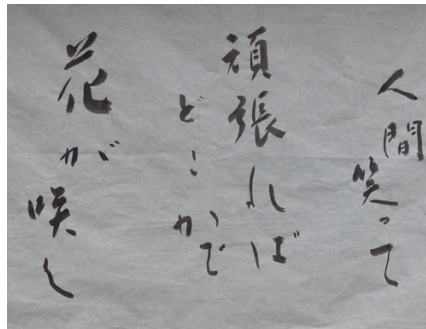 人間笑って
頑張れば
どこかで
花が咲く